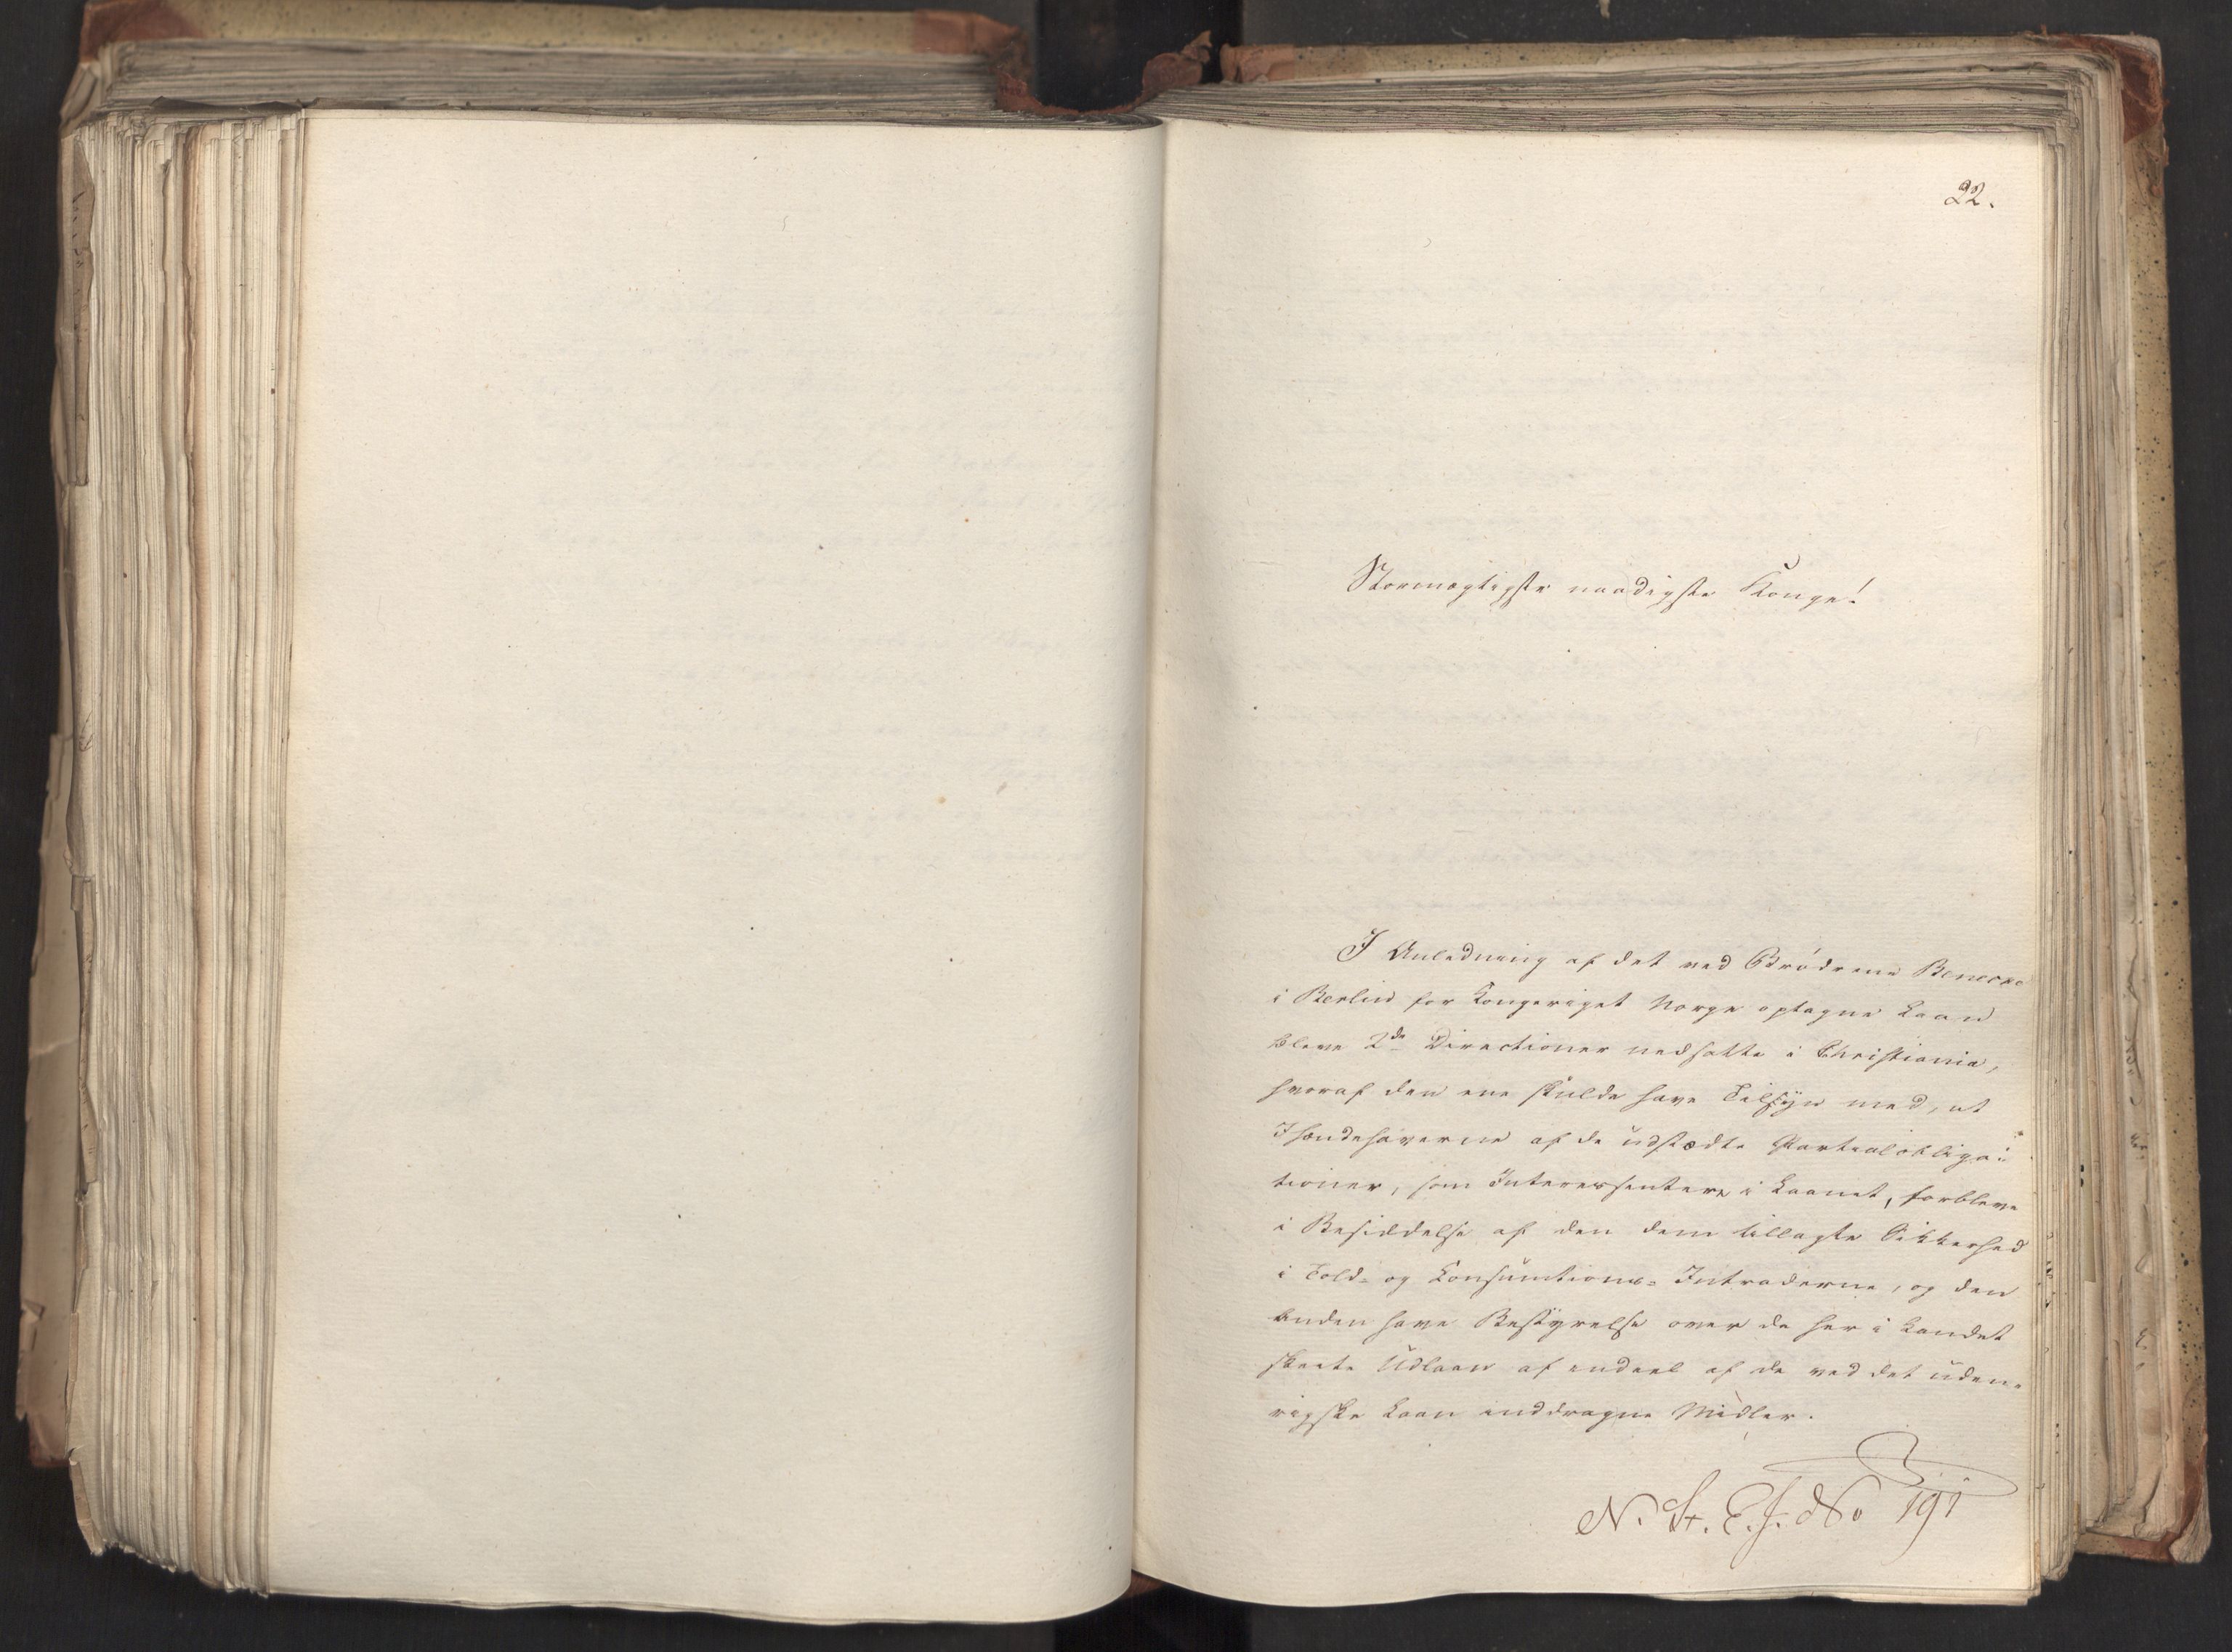 22.
Stormægtigste naadigste Konge!
I Anledning af det ved Brödrene Benecke
i Berlin for Kongeriget Norge optagne Laan
bleve 2de Directioner nedsatte i Christiania,
hvoraf den ene skulde have Tilsyn med, at
Ihændehaverne af de udstædte Partialobliga-
tioner, som Interessentere i Laanet, forbleve
i Besiddelse af den dem tillagte Sikkerhed
i Told- og Consumtions-Intraderne, og den
anden have Bestyrelse over de her i Landet
skeete Udlaan af endeel af de ved det uden-
rigske Laan inddragne Midler.
N. St. E. J. No 191